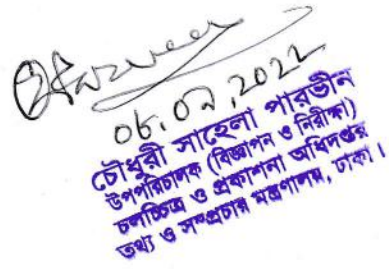 ০৮.০৯.২০২২
চৌধুরী সাহেলা পারভীন
উপপরিচালক (বিজ্ঞাপন ও নিরীক্ষা)
চলচ্চিত্র ও প্রকাশনা অধিদপ্তর
তথ্য ও সম্প্রচার মন্ত্রণালয়, ঢাকা।